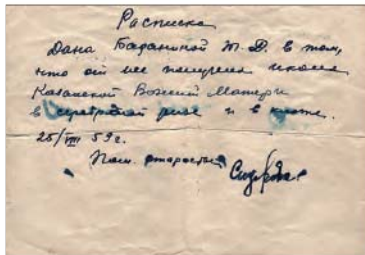 Расписка
Дана Баданиной Т. Д. в том,
что от нее получена икона
Казанской Божией Матери
в серебряной ризе и в киоте.
25/VIII 59 г.
Пом. старосты Сидорова